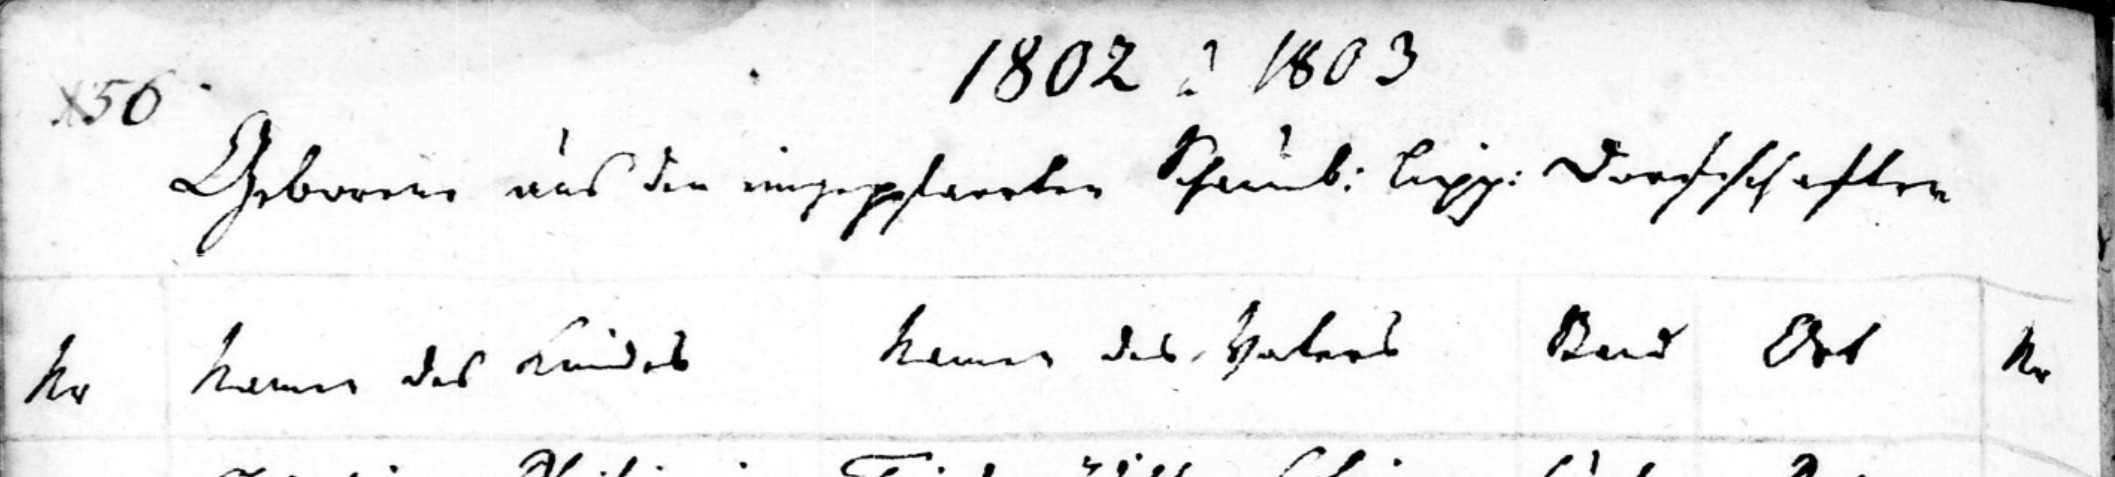 1802 & 1803
156
Geborene aus den eingepfarrten Schaumb: Lipp: Dorfschaften
Nr Namen des Kindes Namen des Vaters Stand Ort Nr